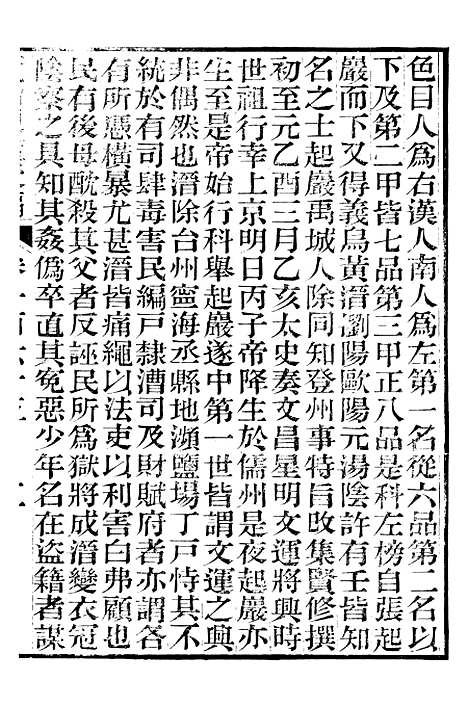 色目人爲右漢人南人爲左第一名從六品第二名以
下及第二甲皆七品第三甲正八品是科左榜自張起
巖而下又得義烏黃溍瀏陽歐陽元湯陰許有壬皆知
名之士起巖禹城人除同知登州事特旨改集賢修撰
初至元乙酉三月乙亥太史奏文昌星明文運將興時
世祖行幸上京明日丙子帝降生於儒州是夜起巖亦
生至是帝始行科舉起巖遂中第一世皆謂文運之興
非偶然也溍除台州寧海丞縣地瀕鹽場丁戸恃其不
統於有司肆毒害民編戸隸漕司及財賦府者亦謂各
有所憑橫暴尤甚溍皆痛繩以法吏以利害白弗顧也
民有後母酖殺其父者反誣民所爲獄將成溍變衣冠
陰察之具知其姦僞卒直其冤惡少年名在盜籍者謀
卷一百六十三